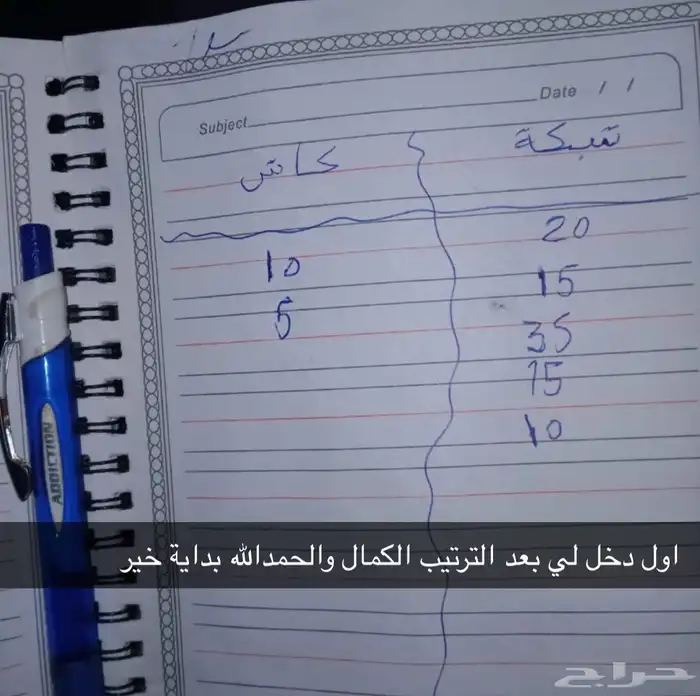 Date / /
Subject
شبكة
كاش
20
15
35
15
10
10
5
ADDICTION
اول دخل لي بعد الترتيب الكمال والحمدالله بداية خير
حراج